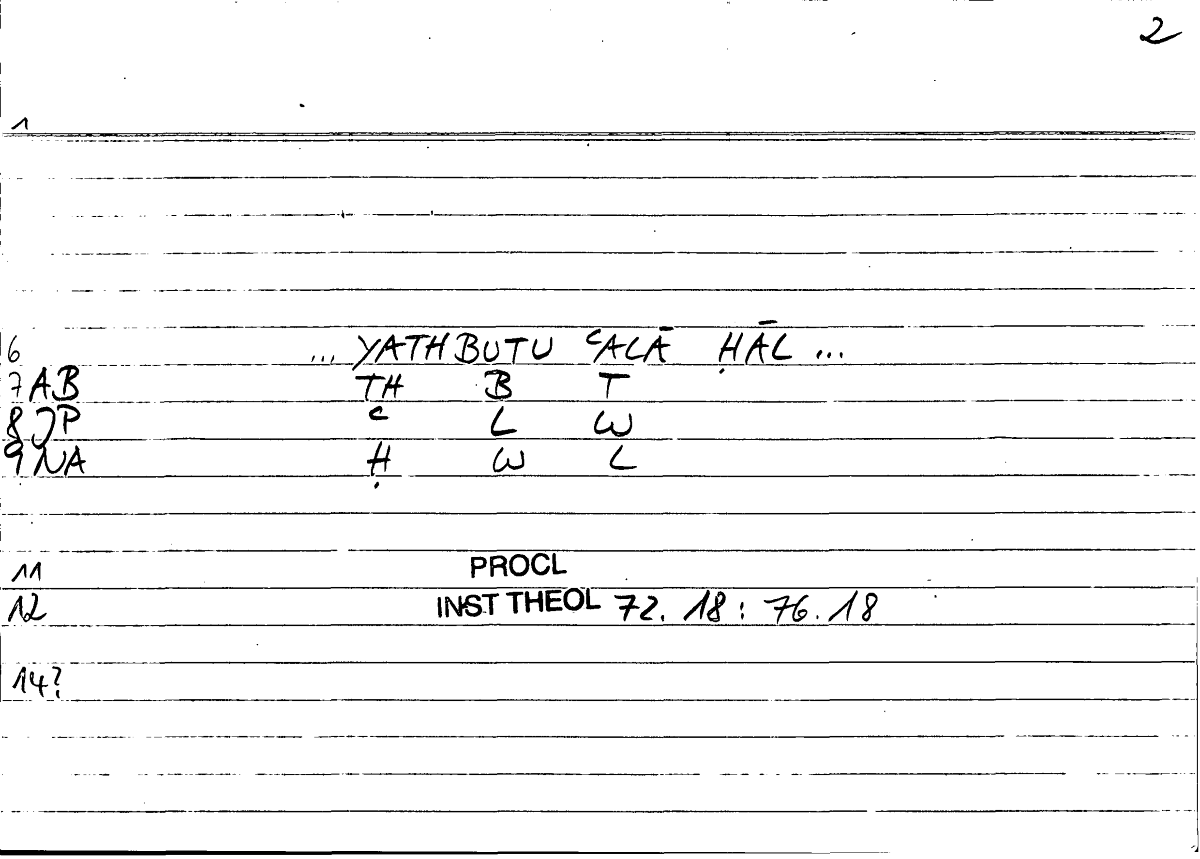 2
1
6 ... YATHBUTU ᶜALĀ ḤĀL ...
7 AB TH B T
8 JP ᶜ L W
9 NA Ḥ W L
11 PROCL
12 INST THEOL 72. 18 : 76. 18
14?